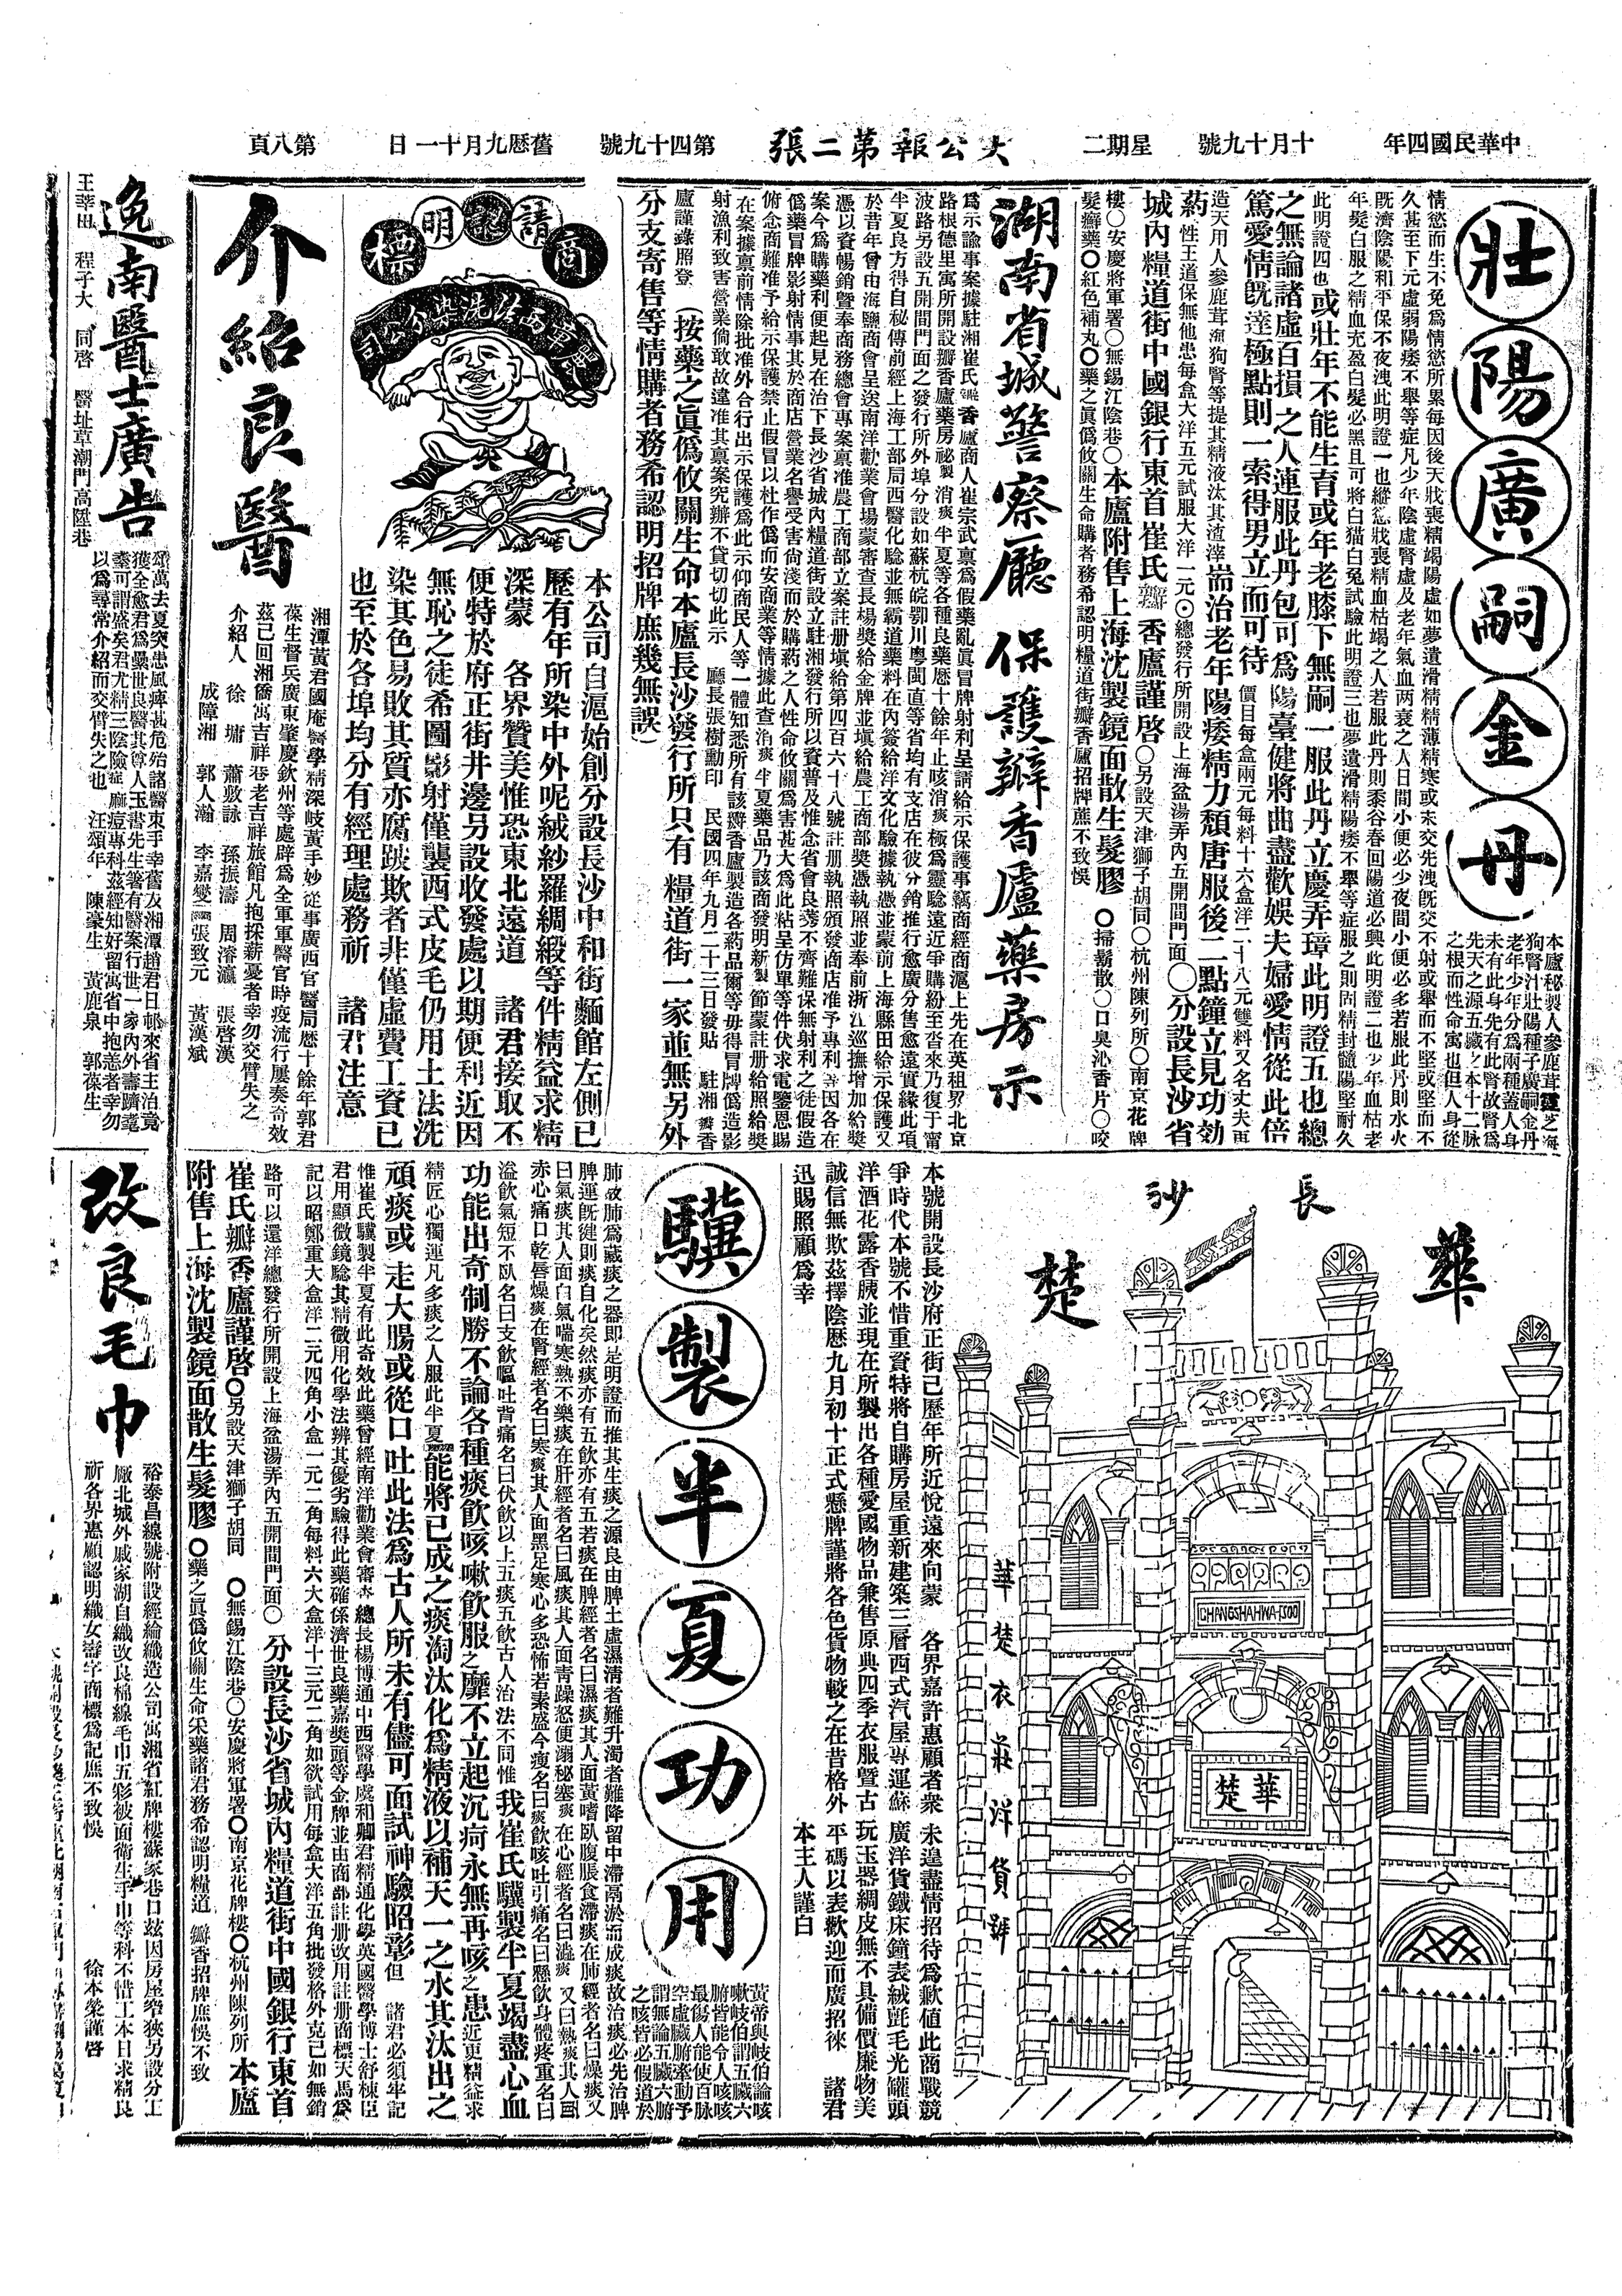 中華民國四年
十月十九號
星期二
大公報第二張
第四十九號
舊歷九月十一日
第八頁
壯陽廣嗣金丹
本廬秘製人參鹿茸靈芝海
狗腎汁壯陽種子廣嗣金丹
老年少年分爲兩種蓋人身
未有此身先有此腎故腎爲
先天之源五臟之本十二脉
之根而性命寓也但人身從
情慾而生不免爲情慾所累每因後天戕喪精竭陽虛如夢遺滑精精薄精寒或未交先洩旣交不射或舉而不堅或堅而不
久甚至下元虛弱陽痿不舉等症凡少年陰虛腎虛及老年氣血兩衰之人日間小便必少夜間小便必多若服此丹則水火
旣濟陰陽和平保不夜洩此明證一也縱慾戕喪精血枯竭之人若服此丹則黍谷春回陽道必興此明證二也少年血枯老
年髮白服之精血充盈白髮必黑且可將白猫白兔試驗此明證三也夢遺滑精陽痿不舉等症服之則固精封髓陽堅耐久
此明證四也或壯年不能生育或年老膝下無嗣一服此丹立慶弄璋此明證五也總
之無論諸虛百損之人連服此丹包可爲陽臺健將曲盡歡娛夫婦愛情從此倍
篤愛情旣達極點則一索得男立而可待 價目每盒兩元每料十六盒洋二十八元雙料又名丈夫再
造天用人參鹿茸海狗腎等提其精液汰其渣滓耑治老年陽痿精力頹唐服後二點鐘立見功効
藥性王道保無他患每盒大洋五元試服大洋一元⊙總發行所開設上海盆湯弄內五開間門面○分設長沙省
城內糧道街中國銀行東首崔氏瓣香廬謹啓○另設天津獅子胡同○杭州陳列所○南京花牌
樓○安慶將軍署○無錫江陰巷○本廬附售上海沈製鏡面散生髮膠 ○掃鬍散○口臭沁香片○咬
髮癬藥○紅色補丸○藥之眞僞攸關生命購者務希認明糧道街瓣香廬招牌庶不致悞
湖南省城警察廳 保護瓣香廬藥房示
爲示諭事案據駐湘崔氏瓣香廬商人崔宗武禀爲假藥亂眞冒牌射利呈請給示保護事竊商經商滬上先在英祖界北京
路根德里寓所開設瓣香廬藥房祕製消痰半夏等各種良藥歷十餘年止咳消痰極爲靈騐遠近爭購紛至沓來乃復于甯
波路另設五開間門面之發行所外埠分設如蘇杭皖鄂川粵閩直等省均有支店在彼分銷推行愈廣分售愈遠實緣此項
半夏良方得自秘傳前經上海工部局西醫化騐並無霸道藥料在內簽給洋文化驗據執憑並蒙前上海縣田給示保護又
於昔年曾由海鹽商會呈送南洋勸業會場蒙審查長楊獎給金牌並塡給農工商部獎憑執照並奉前浙江巡撫增加給獎
憑以資暢銷暨奉商務總會專案禀准農工商部立案註册塡給第四百六十八號註册執照頒發商店准予專利等因各在
案今爲購藥利便起見在治下長沙省城內糧道街設立駐湘發行所以資普及惟念省會良莠不齊難保無射利之徒假造
僞藥冒牌影射情事其於商店營業名譽受害尙淺而於購藥之人性命攸關爲害甚大爲此粘呈仿單等件伏求電鑒恩賜
俯念商難准予給示保護禁止假冒以杜作僞而安商業等情據此查消痰半夏藥品乃該商發明新製節蒙註册給照給獎
在案據禀前情除批准外合行出示保護爲此示仰商民人等一體知悉所有該瓣香廬製造各藥品爾等毋得冒牌僞造影
射漁利致害營業倘敢故違准其禀案究辦不貸切切此示 廳長張樹勳印 民國四年九月二十三日發貼 駐湘瓣香
廬謹錄照登 (按藥之眞僞攸關生命本廬長沙發行所只有糧道街一家並無另外
分支寄售等情購者務希認明招牌庶幾無誤)
請認明商標
本公司自滬始創分設長沙中和街麵館左側已
歷有年所染中外呢絨紗羅綢緞等件精益求精
深蒙 各界贊美惟恐東北遠道 諸君接取不
便特於府正街井邊另設收發處以期便利近因
無恥之徒希圖影射僅襲西式皮毛仍用土法洗
染其色易敗其質亦腐跛欺者非僅虛費工資已
也至於各埠均分有經理處務祈 諸君注意
介紹良醫
湘潭黃君國庵醫學精深岐黃手妙從事廣西官醫局歷十餘年郭君
葆生督兵廣東肇慶欽州等處辟爲全軍軍醫官時疫流行屢奏奇效
茲已回湘僑寓吉祥巷老吉祥旅館凡抱採薪憂者幸勿交臂失之
介紹人 徐墉 蕭敦詠 孫振濤 周溶瀛 張啓漢
成障湘 郭人瀚 李嘉燮 張致元 黃漢斌
逸南醫士廣告
頌萬去夏突患風痺甚危殆諸醫束手幸舊友湘潭趙君日邨來省主治竟
獲全愈君爲纍世良醫其尊人玉書先生箸有醫案行世一家內外壽躋耄
耋可謂盛矣君尤精三陰險症痲痘專科茲經知好留寓省中抱恙者幸勿
以爲尋常介紹而交臂失之也 汪頌年 陳豪生 黃鹿泉 郭葆生
程子大 同啓 醫址草潮門高陞巷
長沙
華楚
華楚衣莊洋貨號
CHANGSHAHWATSOO
華楚
本號開設長沙府正街已歷年所近悅遠來向蒙 各界嘉許惠顧者衆 未遑盡情招待爲歉値此商戰競
爭時代本號不惜重資特將自購房屋重新建築三層西式汽屋專運蘇 廣洋貨鐵床鐘表絨氈毛光罐頭
洋酒花露香胰並現在所製出各種愛國物品兼售原典四季衣服曁古 玩玉器綢皮無不具備價廉物美
誠信無欺茲擇陰歷九月初十正式懸牌謹將各色貨物較之在昔格外 平碼以表歡迎而廣招徠 諸君
迅賜照顧爲幸
本主人謹白
驥製半夏功用
黃帝與岐伯論咳
嗽岐伯謂五臟六
腑皆能令人咳嗽
最傷人能使百脉
空虛臟腑牽動予
謂無論五臟六腑
之咳皆必假道於
肺故肺爲藏痰之器即是明證而推其生痰之源良由脾土虛濕清者難升濁者難降留中滯鬲淤而成痰故治痰必先治脾
脾運旣健則痰自化矣然痰亦有五飲亦有五若痰在脾經者名曰濕痰其人面黃嗜臥腹脹食滯痰在肺經者名曰燥痰又
曰氣痰其人面白氣喘寒熱不樂痰在肝經者名曰風痰其人面青躁怒便溺秘塞痰在心經者名曰熱痰
赤心痛口乾唇燥痰在腎經者名曰寒痰其人面黑足寒心多恐怖若素盛今瘦名曰痰飲咳吐引痛名曰懸飲身體疼重名曰
溢飲氣短不臥名曰支飲嘔吐背痛名曰伏飲以上五痰五飲古人治法不同惟我崔氏驥製半夏竭盡心血
功能出奇制勝不論各種痰飲咳嗽飲服之靡不立起沉疴永無再咳之患近更精益求
精匠心獨運凡多痰之人服此半夏能將已成之痰淘汰化爲精液以補天一之水其汰出之
頑痰或走大腸或從口吐此法爲古人所未有儘可面試神驗昭彰但 諸君必須牢記
惟崔氏驥製半夏有此奇效此藥曾經南洋勸業會審查總長楊博通中西醫學虞和卿君精通化學英國醫學博士舒棟臣
君用顯微鏡騐其精微用化學法辨其優劣驗得此藥確係濟世良藥嘉獎頭等金牌並由商部註册改用註册商標天馬爲
記以昭鄭重大盒洋二元四角小盒一元二角每料六大盒洋十三元二角如欲試用每盒大洋五角批發格外克己如無銷
路可以還洋總發行所開設上海盆湯弄內五開間門面○分設長沙省城內糧道街中國銀行東首
崔氏瓣香廬謹啓○另設天津獅子胡同 ○無錫江陰巷○安慶將軍署○南京花牌樓○杭州陳列所 本廬
附售上海沈製鏡面散生髮膠 ○藥之眞僞攸關生命采藥諸君務希認明糧道 瓣香招牌庶悞不致
改良毛巾
裕泰昌線號附設經綸織造公司寓湘省紅牌樓蘇家巷口玆因房屋窄狹另設分工
廠北城外戚家湖自織改良棉線毛巾五彩被面衛生手巾等科不惜工本日求精良
祈各界惠顧認明織女壽字商標爲記庶不致悞 徐本榮謹啓